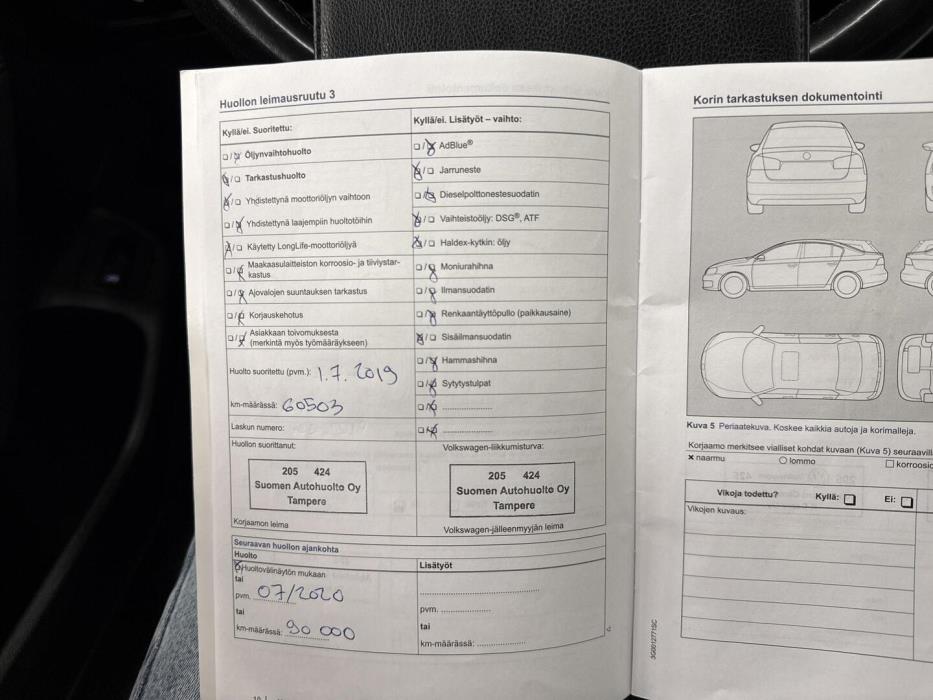 Huollon leimausruutu 3
Kyllä/ei. Suoritettu:
Öljynvaihtohuolto
Tarkastushuolto
Yhdistettynä moottoriöljyn vaihtoon
Yhdistettynä laajempiin huoltotöihin
Käytetty LongLife-moottoriöljyä
Maakaasulaitteiston korroosio- ja tiiviystar-
kastus
Ajovalojen suuntauksen tarkastus
Korjauskehotus
Asiakkaan toivomuksesta
(merkintä myös työmääräykseen)
Huolto suoritettu (pvm.): 1.7. 2019
km-määrässä: 60503
Laskun numero:
Huollon suorittanut:
205 424
Suomen Autohuolto Oy
Tampere
Korjaamon leima
Kyllä/ei. Lisätyöt – vaihto:
AdBlue®
Jarruneste
Dieselpolttonestesuodatin
Vaihteistoöljy: DSG®, ATF
Haldex-kytkin: öljy
Moniurahihna
Ilmansuodatin
Renkaantäyttöpullo (paikkausaine)
Sisäilmansuodatin
Hammashihna
Sytytystulpat
Volkswagen-liikkumisturva:
205 424
Suomen Autohuolto Oy
Tampere
Volkswagen-jälleenmyyjän leima
Seuraavan huollon ajankohta
Huolto
Huoltovälinäytön mukaan
tai
pvm. 07/2020
tai
km-määrässä: 90 000
Lisätyöt
pvm.
tai
km-määrässä:
Korin tarkastuksen dokumentointi
Kuva 5 Periaatekuva. Koskee kaikkia autoja ja korimalleja.
Korjaamo merkitsee vialliset kohdat kuvaan (Kuva 5)
× naarmu ○ lommo □ korroosio
Vikoja todettu? Kyllä: □ Ei: □
Vikojen kuvaus:
3G0012771SC